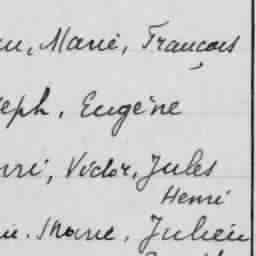 Marie, François
eph, Eugène
Victor, Jules
Henri
Marie, Julien